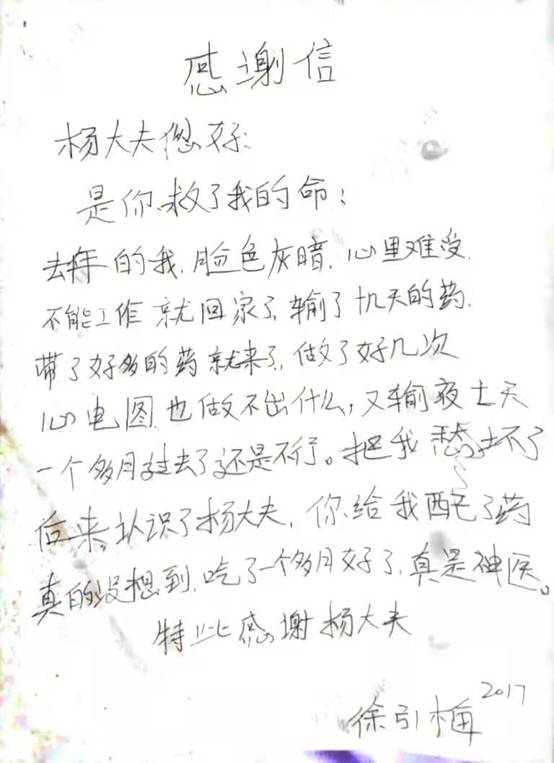 感谢信
杨大夫您好:
是你救了我的命:
去年的我,脸色灰暗,心里难受,
不能工作就回家了,输了九天的药.
带了好多的药就来了,做了好几次
心电图也做不出什么,又输液七天
一个多月过去了还是不行。把我愁坏了
后来,认识了杨大夫,你给我配了药
真的没想到,吃了一个多月好了,真是神医。
特此感谢杨大夫
徐引梅 2017